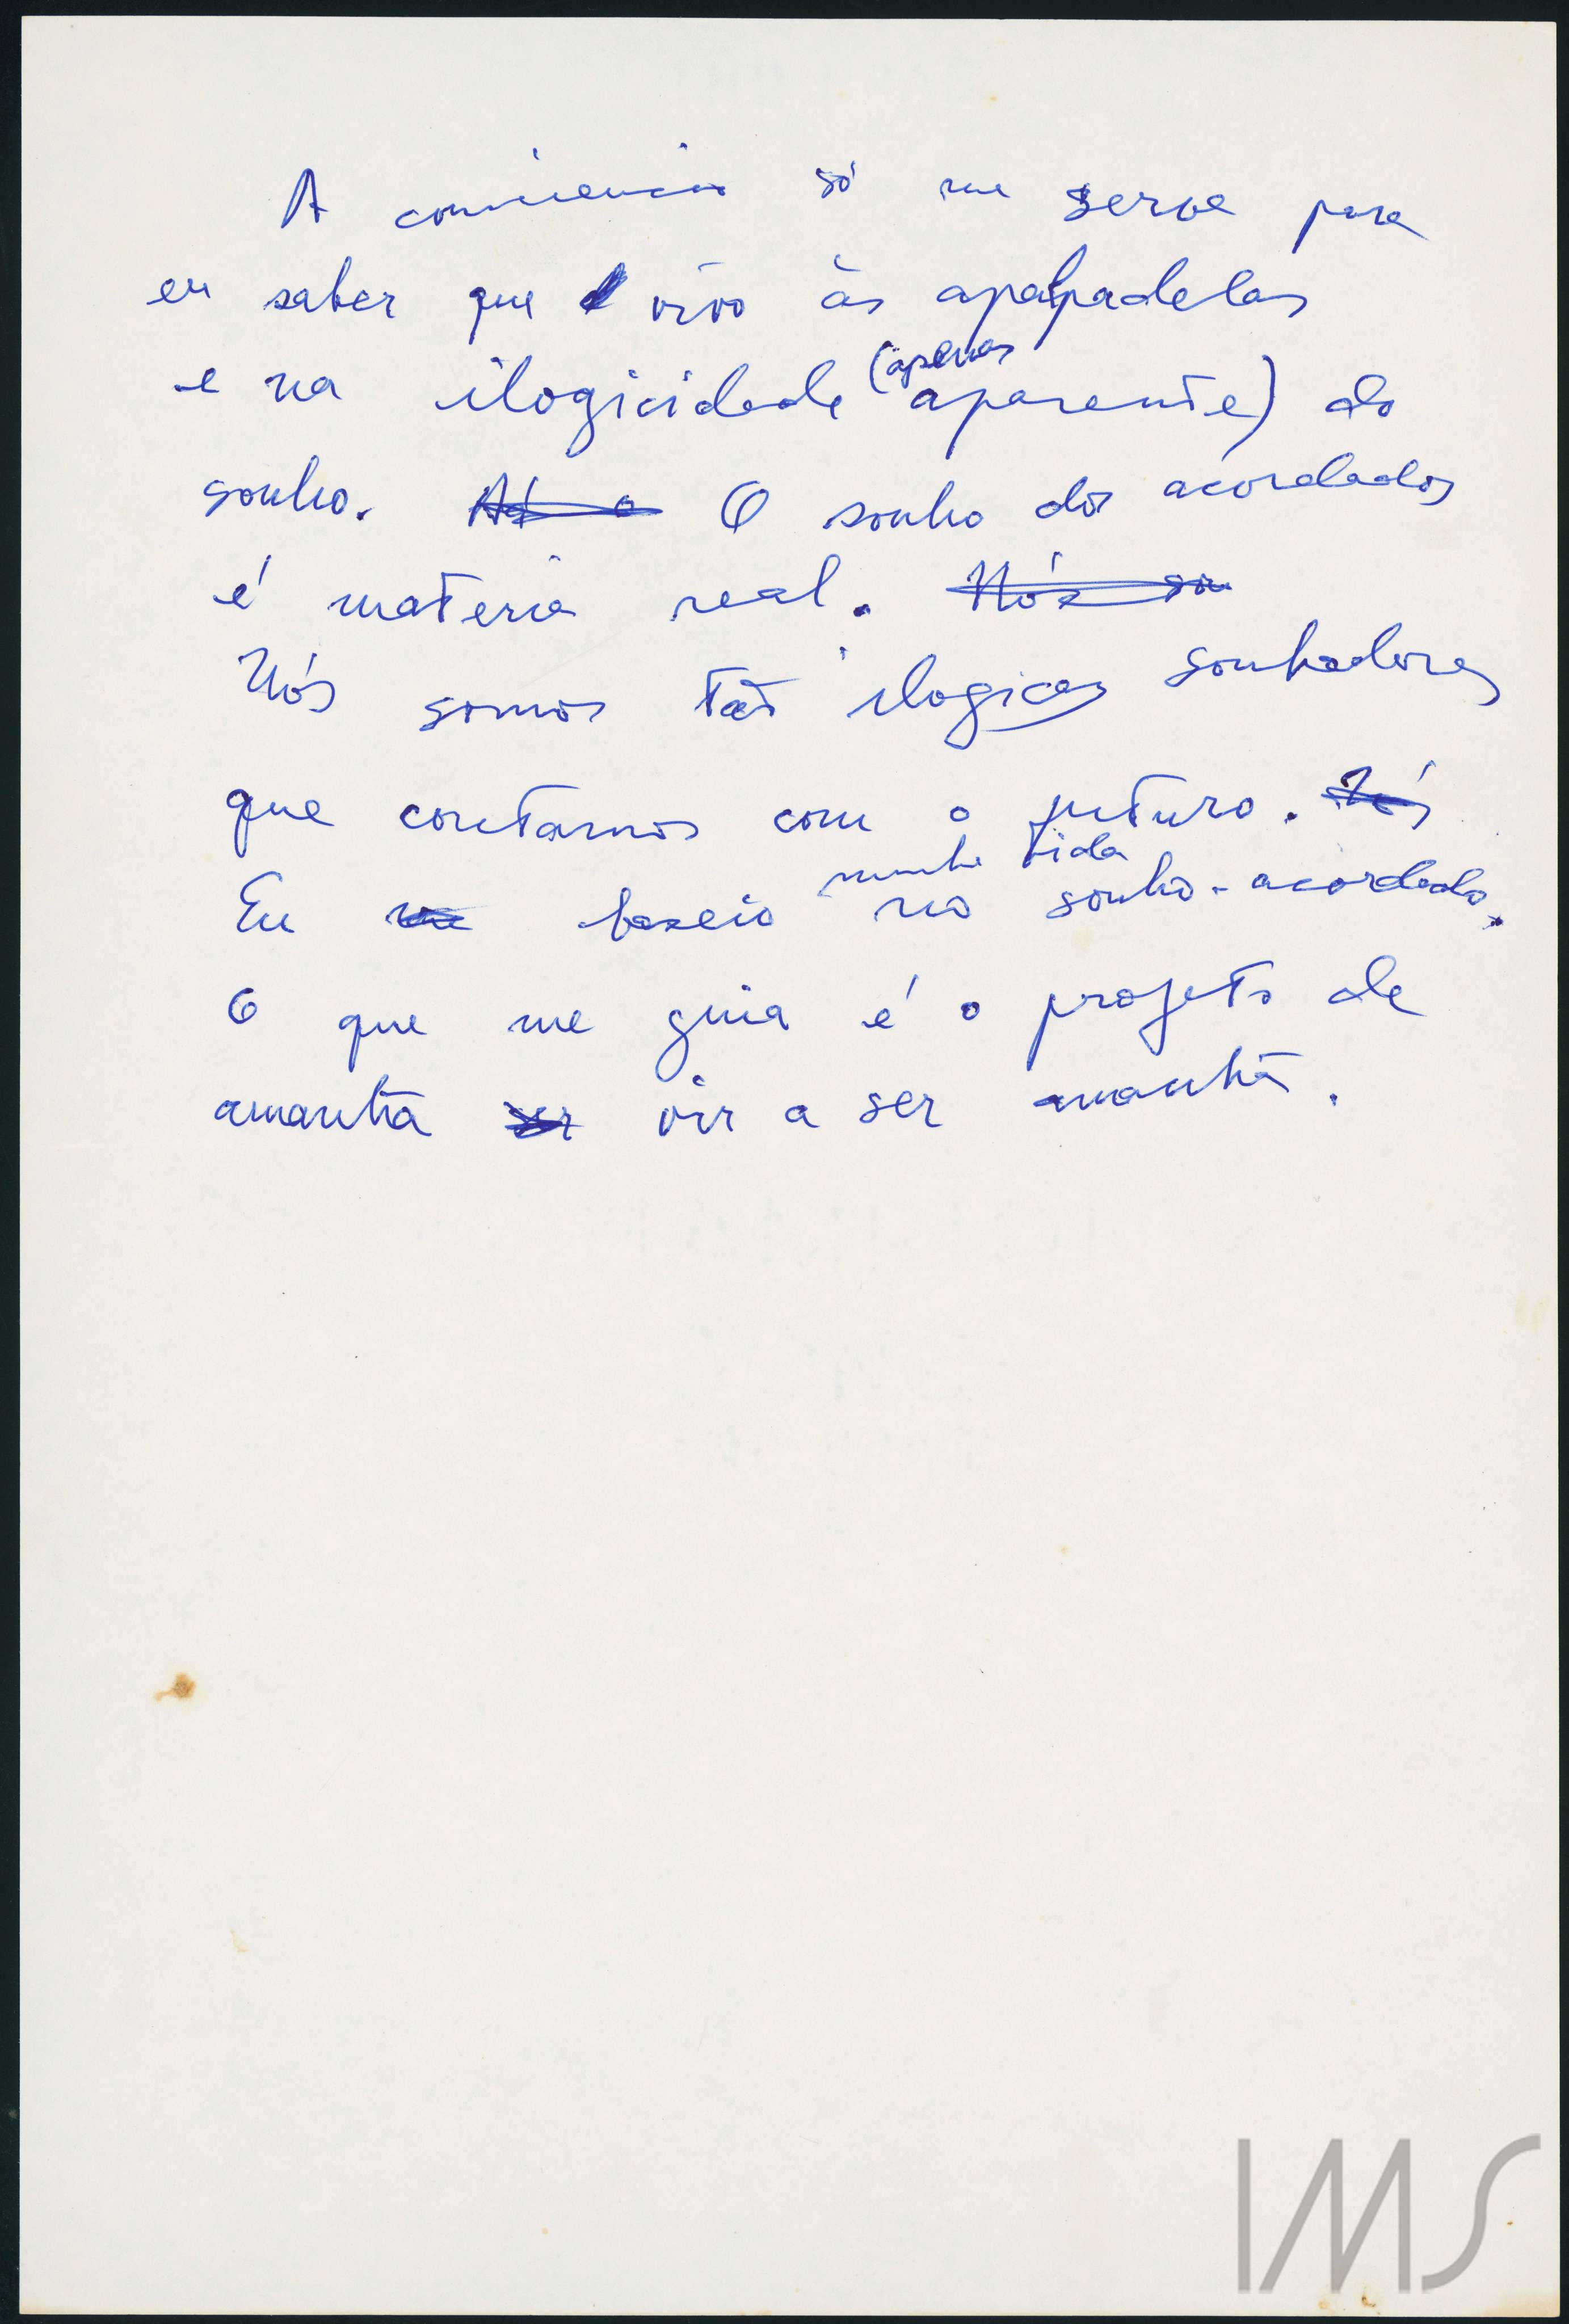 A consciencia só me serve para
eu saber que vivo às apalpadelas
e na ilogicidade (apenas aparente) do
sonho. O sonho dos acordados
é materia real. Nós so
Nós somos tão ilogicos sonhadores
que contamos com o futuro. Nós
Eu me baseio minha vida no sonho-acordado.
O que me guia é o projeto de
amanhã ser vir a ser amanhã.
IMS